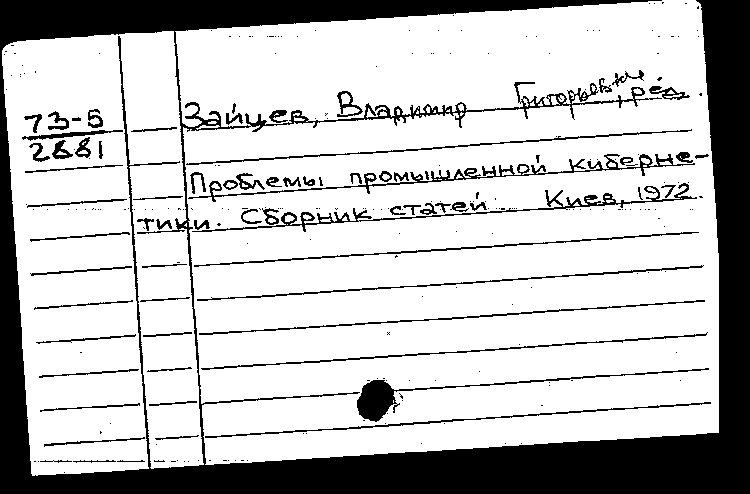 73-5
2881
Зайцев, Владимир Григорьевич, ред.
Проблемы промышленной киберне-
тики. Сборник статей. Киев, 1972.